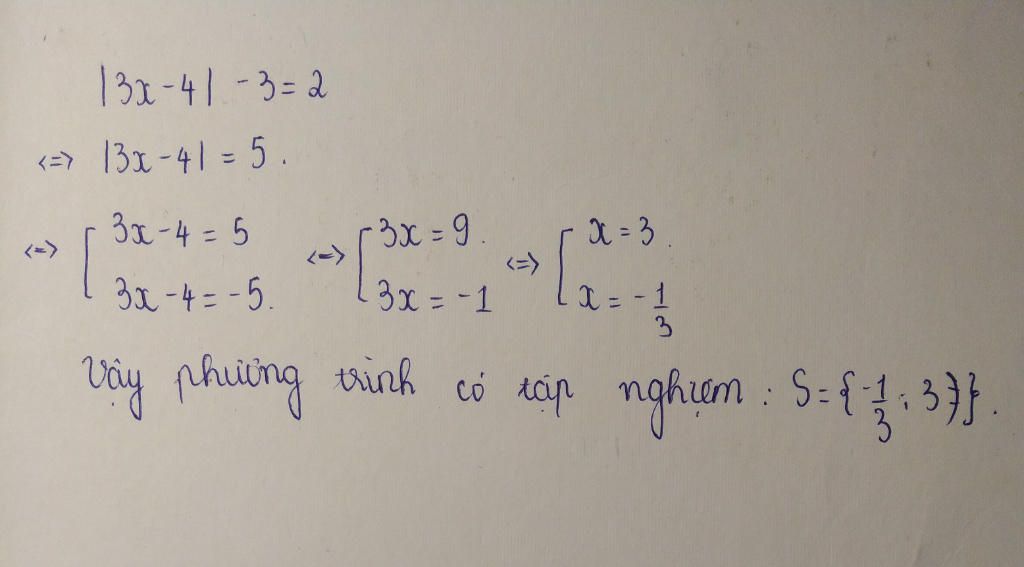 |3x-4| -3=2
<=> |3x-4| = 5.
<=> [ 3x-4 = 5 <=> [ 3x = 9. <=> [ x = 3.
3x-4 = -5. 3x = -1 x = -1/3
Vậy phương trình có tập nghiệm : S = {-1/3 ; 3}}.